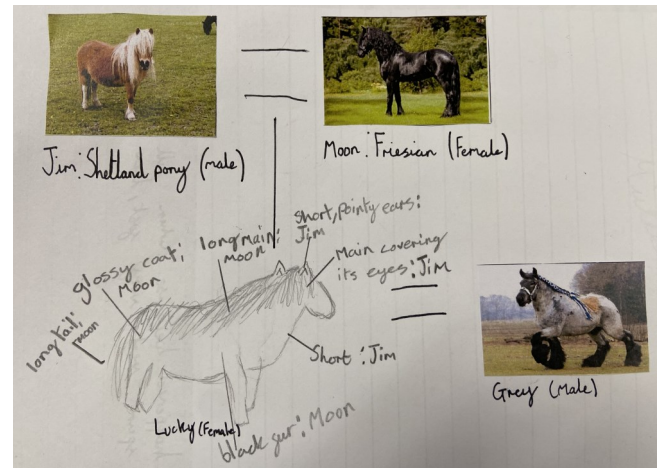 Jim: Shetland pony (male)
Moon: Friesian (Female)
short, pointy ears:
Jim
long main:
moon
glossy coat:
Moon
Main covering
its eyes: Jim
long tail:
moon
Short: Jim
Grey (Male)
Lucky (Female)
black fur: Moon